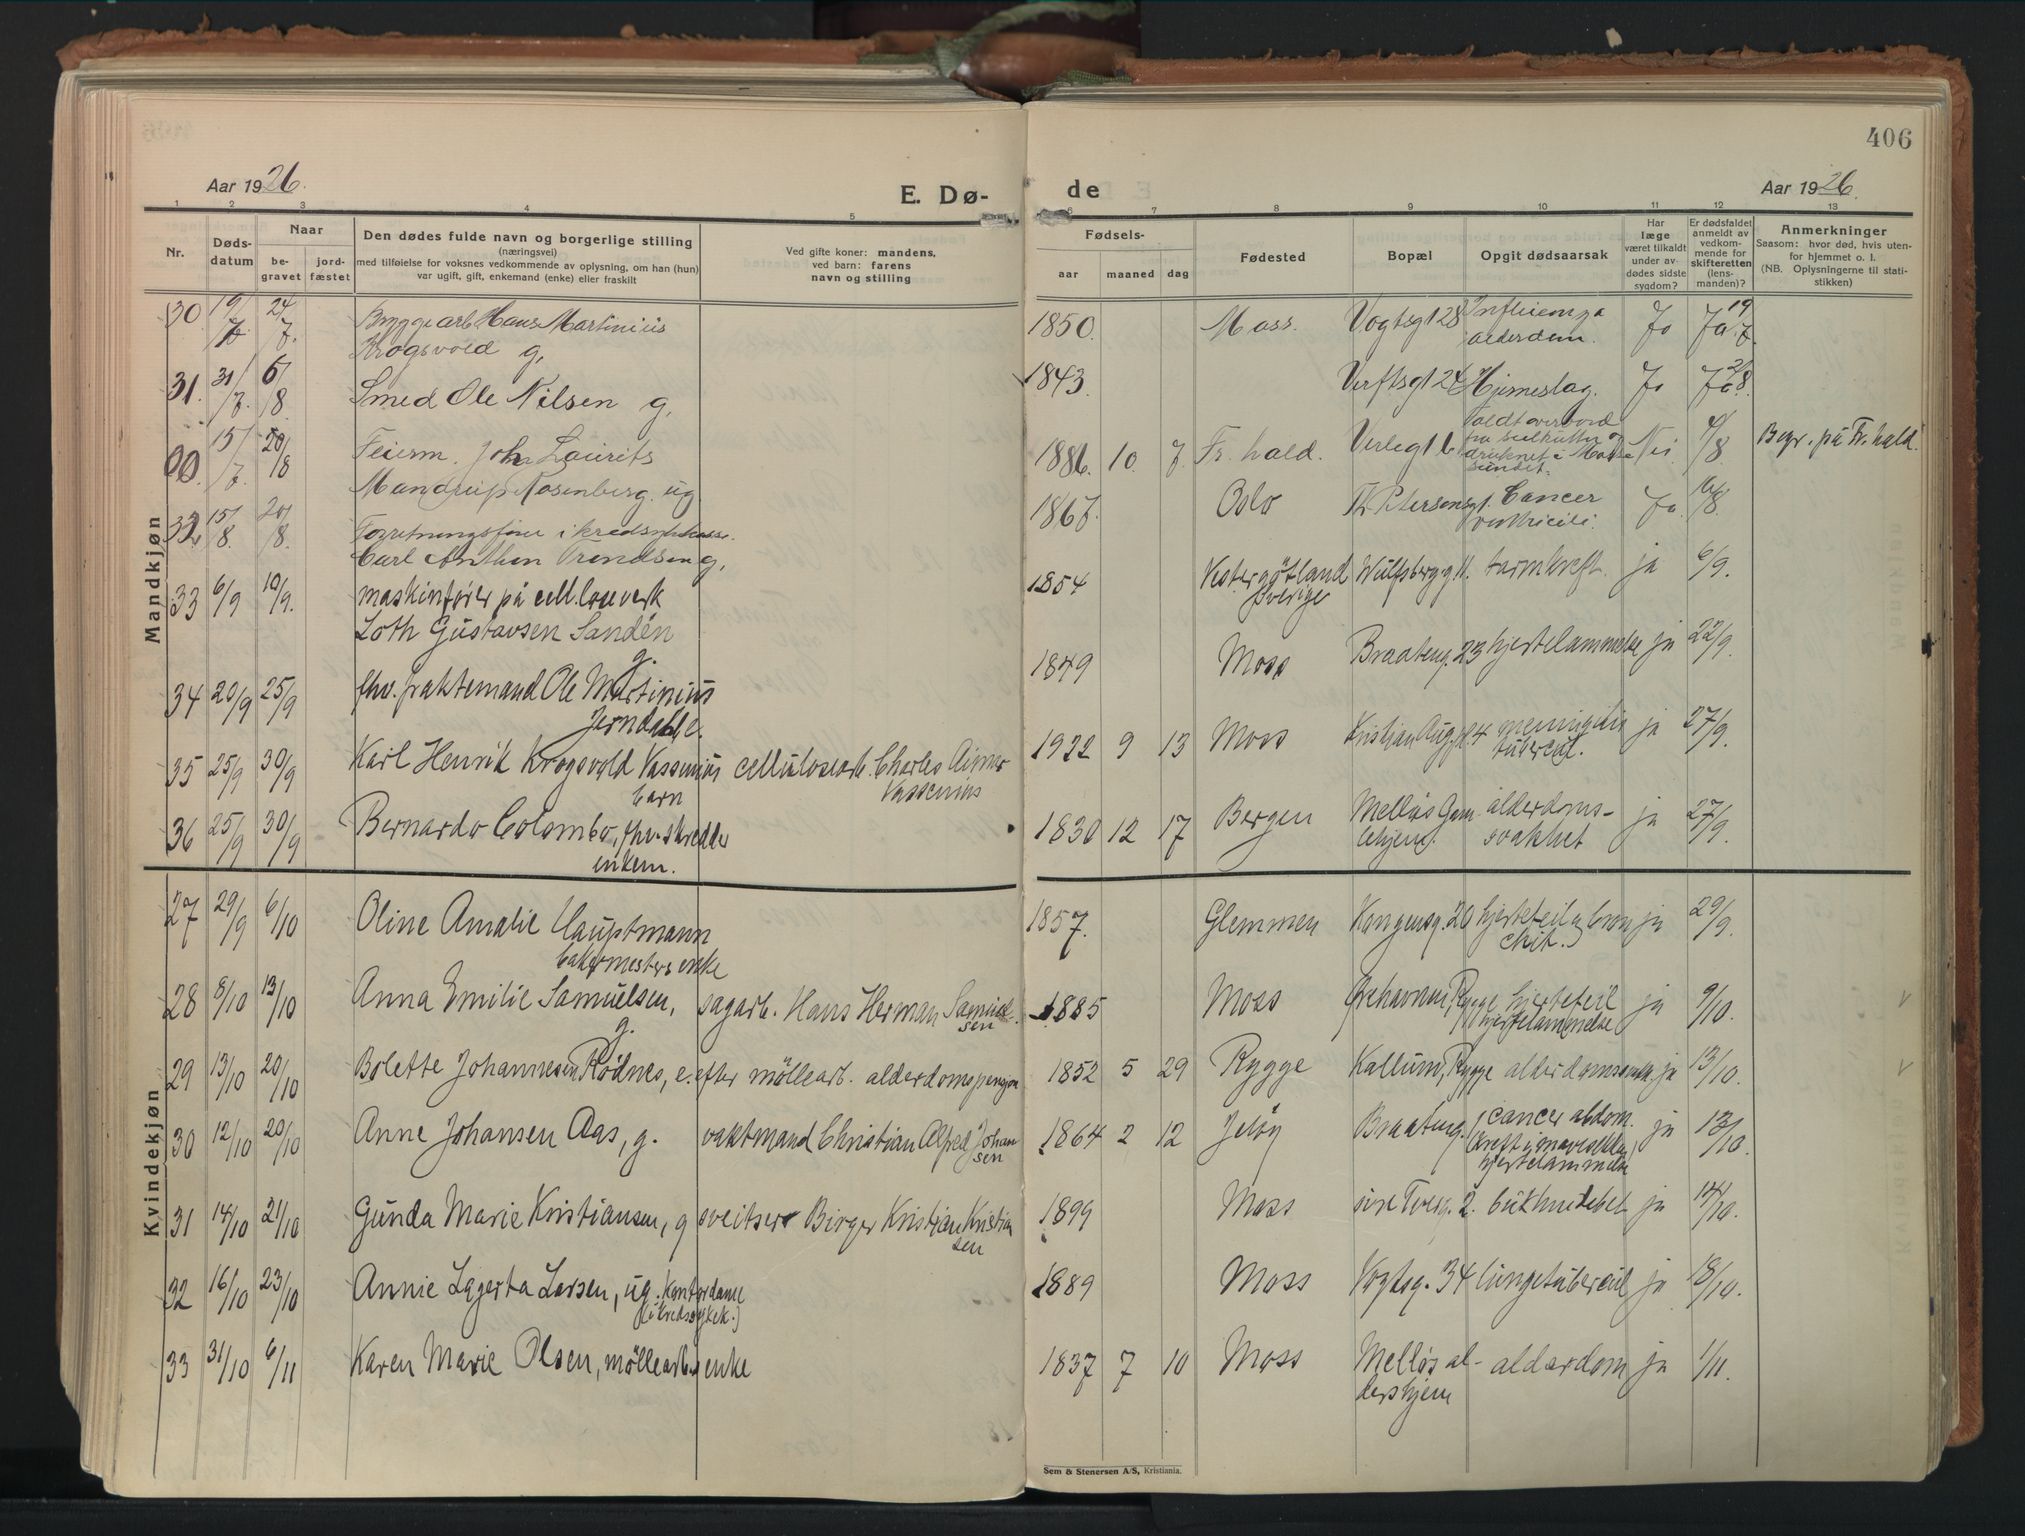 406
Aar 1926.
E. Dø-
de
Aar 1926.
1 2 3 4 5 6 7 8 9 10 11 12 13
Nr.
Døds-
datum
Naar
be-
gravet
jord-
fæstet
Den dødes fulde navn og borgerlige stilling
(næringsvei)
med tilføielse for voksnes vedkommende av oplysning, om han (hun)
var ugift, gift, enkemand (enke) eller fraskilt
Ved gifte koner: mandens,
ved barn: farens
navn og stilling
Fødsels-
aar maaned dag
Fødested
Bopæl
Opgit dødsaarsak
Har
læge
været tilkaldt
under av-
dødes sidste
sygdom?
Er dødsfaldet
anmeldt av
vedkom-
mende for
skifteretten
(lens-
manden)?
Anmerkninger
Saasom: hvor død, hvis uten-
for hjemmet o. l.
(NB. Oplysningerne til stati-
stikken)
Mandkjøn
30 19/7 24/7. Bryggearb Hans Martinius
Krogsvold g, 1850. Moss. Vogtsgt 28 Influenza
alderdom. Ja Ja 19/7.
31. 31/7. 6/8 Smed Ole Nilsen g, 1843. Verftsgt 24 Hjerneslag. Ja Ja 2/8.
00. 15/7. 20/8 Feierm. Joh Laurits
Mandrup Rosenberg. ug 1886. 10. 7. Fr. hald. Verlegt 6 Faldt overbord
fra seilkutter og
druknet i Mosse-
sundet. Nei 4/8. Begr. på Fr. hald.
32. 15/8. 20/8. Forretningsfører i kredssykekasse.
Carl Anthon Trondsen g, 1867. Oslo Th. Petersonsgt. Cancer
ventriculi. Ja. 16/8.
33 6/9 10/9. maskinfører på cell.loseverk
Loth Gustavsen Sandén
g. 1854 Vestergötland
Sverige Wulfsbergg. 11. tarmkreft. ja 6/9.
34 20/9 25/9 fhv. fraktemand Ole Martinius
Jerndahl e. 1849 Moss Braateng. 23 hjertelammelse ja 22/9.
35 25/9 30/9 Karl Henrik Krogsvold Vassenius
barn cellulosearb. Charles Aimar
Vassenius 1922 9 13 Moss Kristian Aug.gt. 4 meningitis
tubercul. ja 27/9.
36 25/9 30/9 Bernardo Colombo, fhv. skredder
enkem. 1830 12 17 Bergen Melløs Gam-
lehjem. alderdoms-
svakhet ja 27/9.
Kvindekjøn
27 29/9 6/10 Oline Amalie Hauptmann
bakermesters enke 1857. Glemmen Kongensg. 20 hjertefeil og bron
chit. ja 29/9.
28 8/10 13/10 Anna Emilie Samuelsen,
g. sagarb. Hans Herman Samuel-
sen 1885 Moss Ørehavnen, Rygge hjertefeil
hjertelammelse ja 9/10.
29 13/10 20/10 Bolette Johannesen Rödnes, e. efter möllearb. alderdomspensjon 1852 5 29 Rygge Kallum, Rygge alderdomssvakh. ja 13/10.
30 12/10 20/10 Anne Johansen Aas, g. vaktmand Christian Alfred Johan
sen 1864 2 12 Jeløy Braateng. cancer abdom.
(kreft i mavesekken)
hjertelammelse ja 13/10.
31 14/10 21/10 Gunda Marie Kristiansen, g sveitser Birger Kristjan Kristian
sen 1899 Moss øvre Tverg. 2. bukhindebet ja 14/10.
32 16/10 23/10 Annie Lagerta Larsen, ug. Kontordame
(i kredssykek.) 1889 Moss Vogtsg. 34 lungetubercul ja 18/10.
33 31/10 6/11 Karen Marie Olsen, möllearb. enke 1837 7 10 Moss Melløs al-
dershjem alderdom ja 1/11.
Sem & Stenersen A/S, Kristiania.